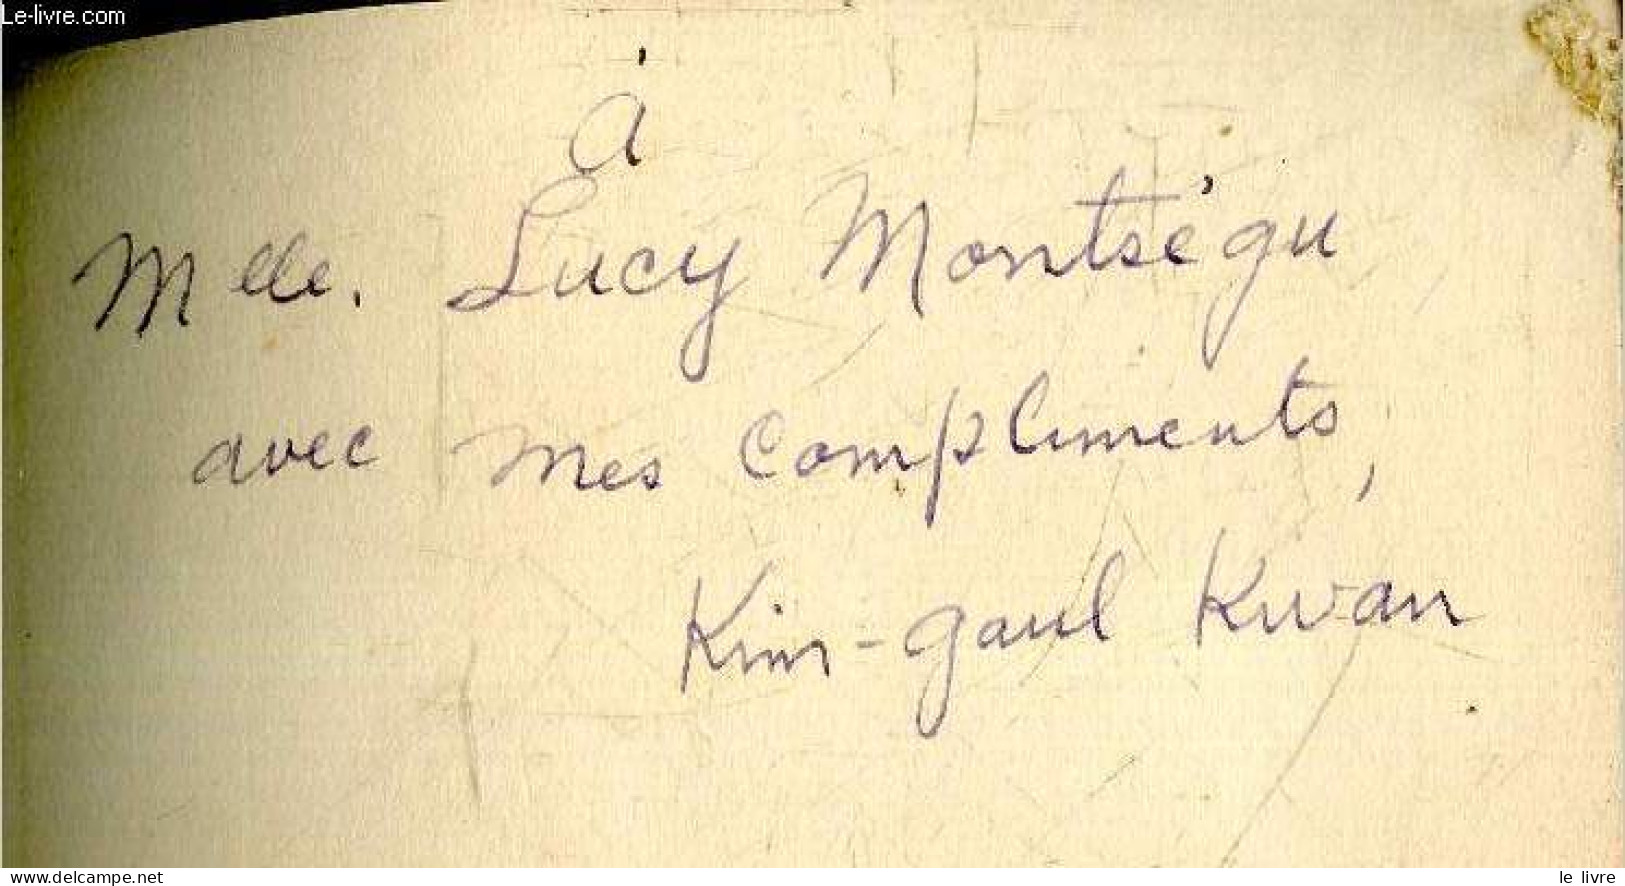 Le-livre.com
á
Mlle. Lucy Montségu
avec mes compliments,
Kim-gaul Kwan
www.delcampe.net
le livre